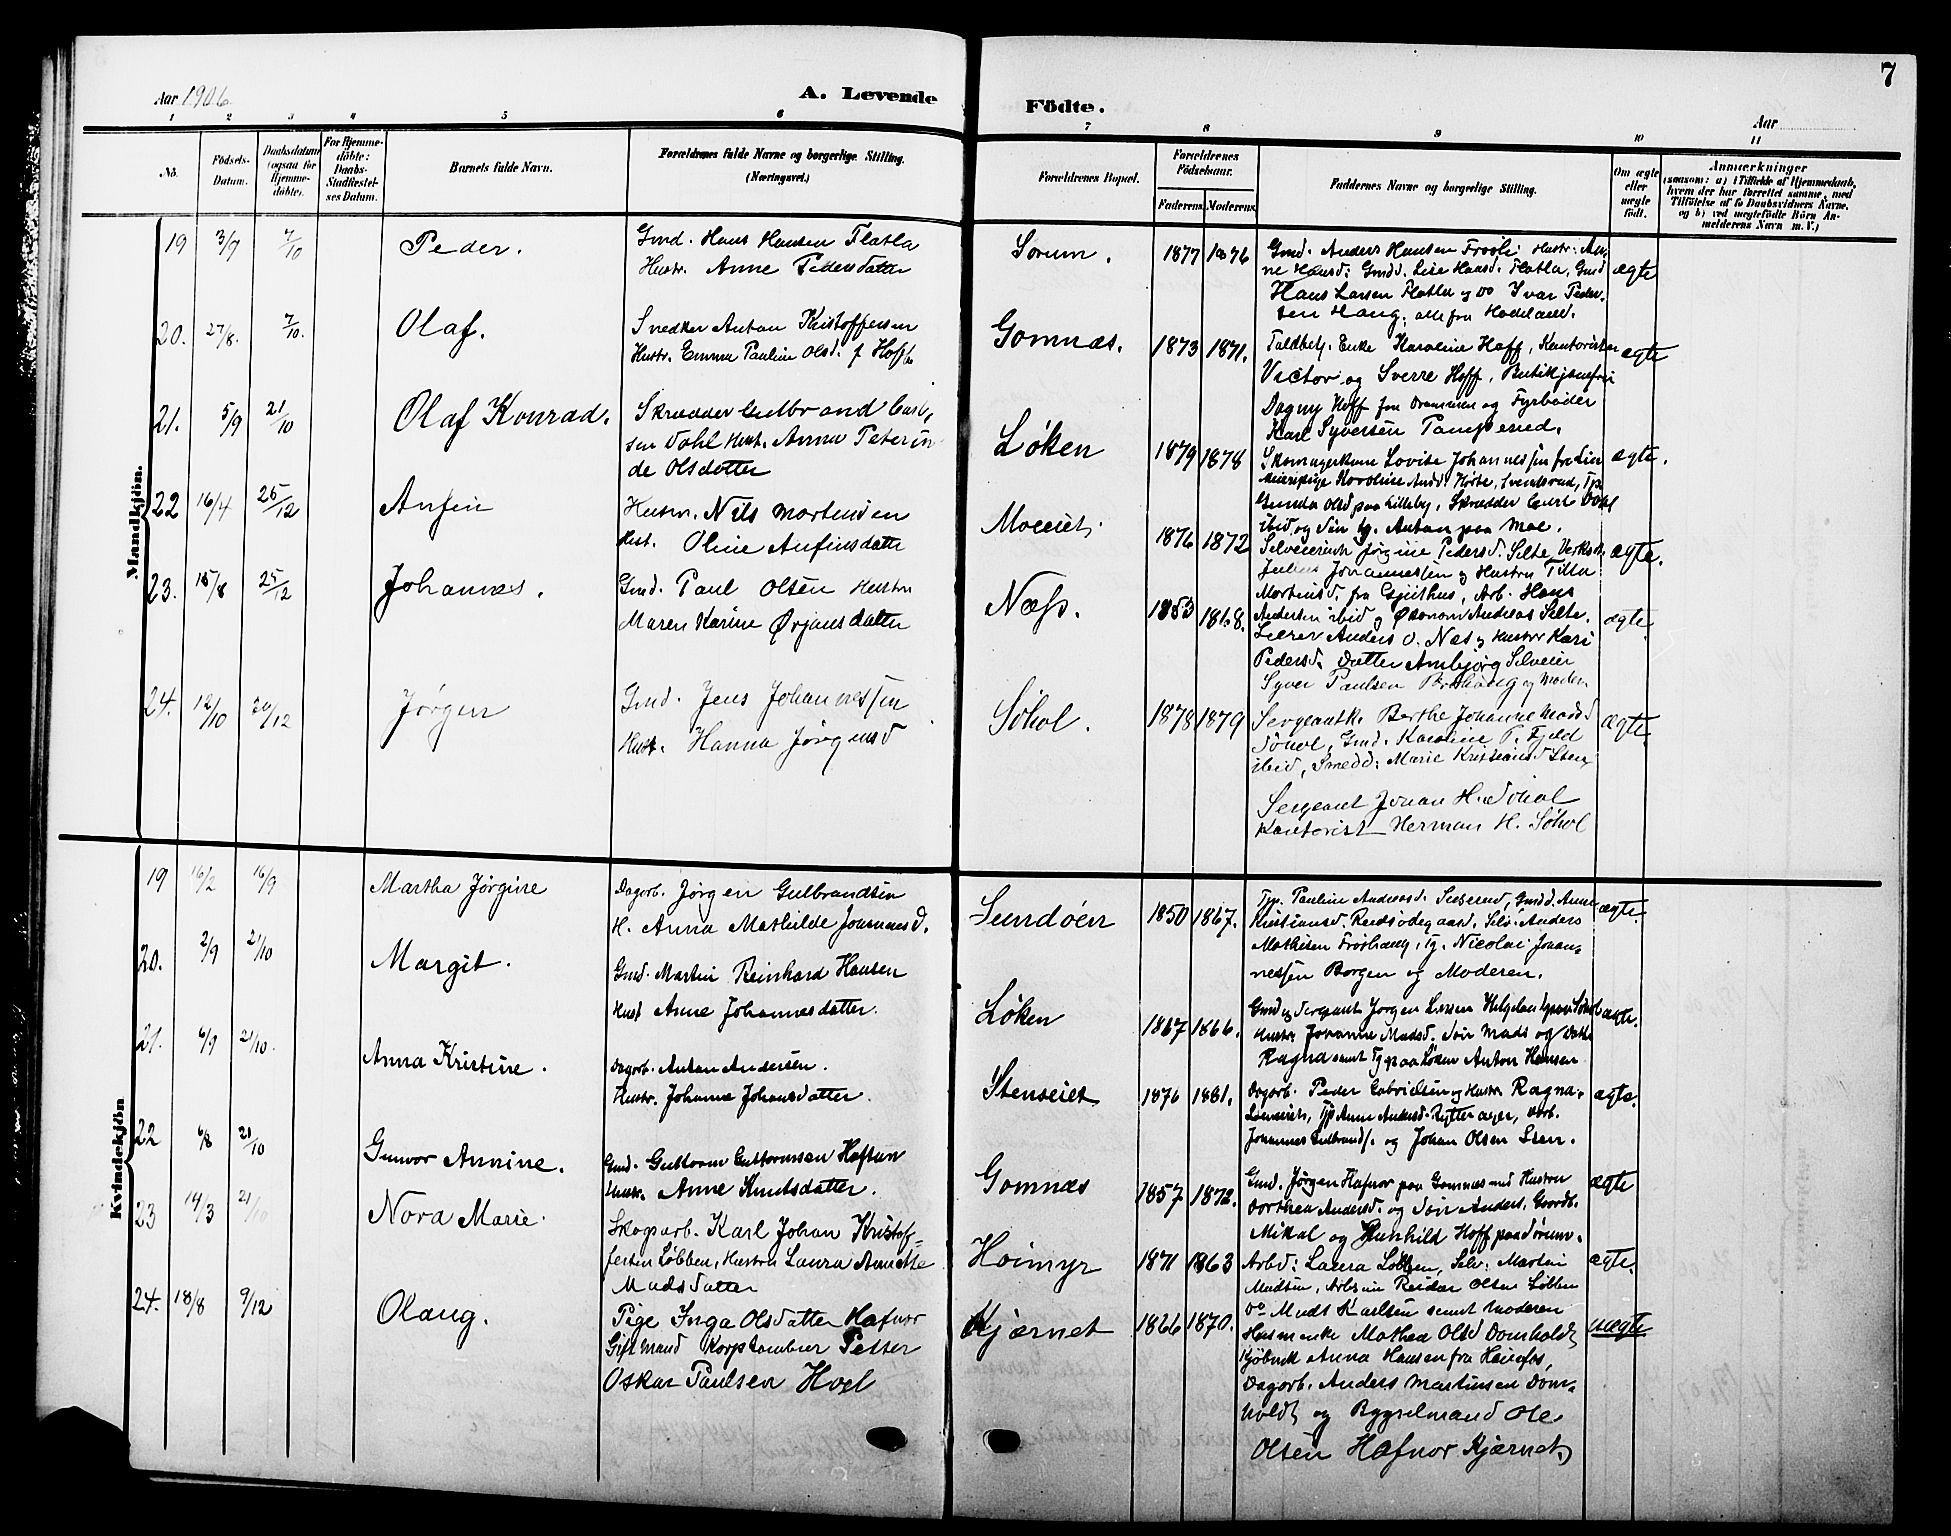 7
Aar 1906.
A. Levende
Födte.
Aar
1 2 3 4 5 6
7 8 9 10 11
No.
Födsels-
Datum.
Daabsdatum
(ogsaa for
Hjemme-
döbte).
For Hjemme-
döbte:
Daabs-
Stadfæstel-
ses Datum.
Barnets fulde Navn.
Forældrenes fulde Navne og borgerlige Stilling.
(Næringsvei.)
Forældrenes Bopæl.
Forældrenes
Födselsaar.
Faderens. Moderens.
Faddernes Navne og borgerlige Stilling.
Om ægte
eller
uægte
födt.
Anmærkninger
(saasom: a) i Tilfælde af Hjemmedaab,
hvem der har forrettet samme, med
Tilföielse af to Daabsvidners Navne,
og b) ved uægtefödte Börn An-
melderens Navn m. V.)
Mandkjön.
19 3/9 7/10 Peder.
Gmd. Hans Hansen Flatla
Hustr. Anne Pedersdatter
Sørum. 1877 1876
Gmd. Anders Hansen Hustr. An-
ne Hansd. Gmdd. Lise Hansd. Flatla, Gmd
Hans Larsen Flatla og Do Ivar Peder-
sen Haug, alle fra Hadeland.
ægte
20. 27/8. 7/10. Olaf.
Snedker Anton Kristoffersen
Hustr. Emma Pauline Olsd. f. Hoff
Gomnæs. 1873 1871.
Enke Karoline Hoff, Kontorist
Victor og Sverre Hoff,
Dagny Hoff fra Drammen og Fyrbøder
Karl Syversen
ægte
21. 5/9 21/10 Olaf Konrad.
Skrædder Gulbrand Carl-
sen Dahl Hust. Anna Peterin-
de Olsdatter
Løken 1879 1878
Lovise Johannessen fra Lier
Karoline Andd.
Olsd paa Lilleby, Skrædder Carl Dahl
ibid og Søn Anton paa Moe.
ægte.
22 16/4 25/12 Anfin
Hustr. Nils Mortensen
Hust. Oline Anfinsdatter
Moeeiet. 1876 1872
Jørgine Pedersd. Selte,
Julius Johannessen og Hustru Tilla
Mortensd. fra Gjeithus, Arb. Hans
Andersen ibid og Økonom Andreas Selte.
ægte.
23. 15/8 25/12 Johannes.
Gmd. Paul Olsen Hustru
Maren Karine Ørjansdatter
Næss. 1853 1868.
Lærer Anders O. Næs og Hustru Kari
Pedersd. Datter Ambjørg Selveier
Syver Paulsen og Moderen
ægte.
24. 12/10 26/12 Jørgen
Gmd. Jens Johannessen
Hustr. Hanna Jørgensd
Søhol. 1878 1879
Sergeantk. Berthe Johanne Madsd
Søhol, Gmd. Karoline P. Fjeld
ibid, Smedd: Marie Kristiansd Sten
Sergeant Johan H. Søhol
Kontorist Herman H. Søhol
ægte.
Kvindekjön
19 16/2 16/9 Martha Jørgine
Dagarb. Jørgen Gulbrandsen
H. Anna Mathilde Johannesd.
Sundøen 1850 1867.
Tjp. Pauline Andersd. Gmdd. Anne
Kristiansd. Selv. Anders
Mathisen Tg. Nicolai Johan-
nessen Borgen og Moderen.
ægte
20. 2/9 21/10 Margit.
Gmd. Martin Reinhard Hansen
Hust Anne Johannesdatter.
Løken 1867 1866.
Gmd og Sergeant Jørgen Larsen Helgeland paa Søhol
Hustru Johanne Madsd. Søn Mads og Datter
Ragna samt Tg paa Løken Anton Hansen
ægte.
21. 6/9 21/10. Anna Kristine.
Dagarb. Anton Andersen.
Hustr. Johanne Johansdatter.
Stenseiet 1876 1881.
Dagarb. Peder Gabrielsen og Hustr. Ragna
Tjp. Anne Andersd. Rytterager, Arb.
Johannes Gulbrands. og Johan Olsen Sten.
ægte.
22 6/8 21/10 Gunvor Annine.
Gmd. Guttorm Guttormsen Haftun
Hustr. Anne Knutsdatter.
Gomnæs 1857 1872.
Gmd. Jørgen Hafnor paa Gomnæs med Hustru
Dorthea Andersd. og Søn Anders. Gaardb.
Mikal og Gunhild Hoff paa Sørum.
ægte
23 14/3 21/10 Nora Marie.
Skogsarb. Karl Johan Kristof-
fersen Løbben, Hustru Laura Annette
Madsdatter
Høimyr 1871 1863
Arbd: Laura Løbben, Selv: Martin
Madsen, Reidar Olsen Løbben
Do Mads Karlsen samt Moderen
ægte.
24. 18/8 9/12 Olaug.
Pige Inga Olsdatter Hafnor
Gift Mand Korptambur Petter
Oskar Paulsen Hoel
Kjærnet 1866 1870.
Husm.enke Mathea Olsd Domholdt
Anna Hansen fra Hønefos,
Dagarb. Anders Martinsen Dom-
holdt og Bygselmand Ole
Olsen Hafnor Kjærnet.
uægte